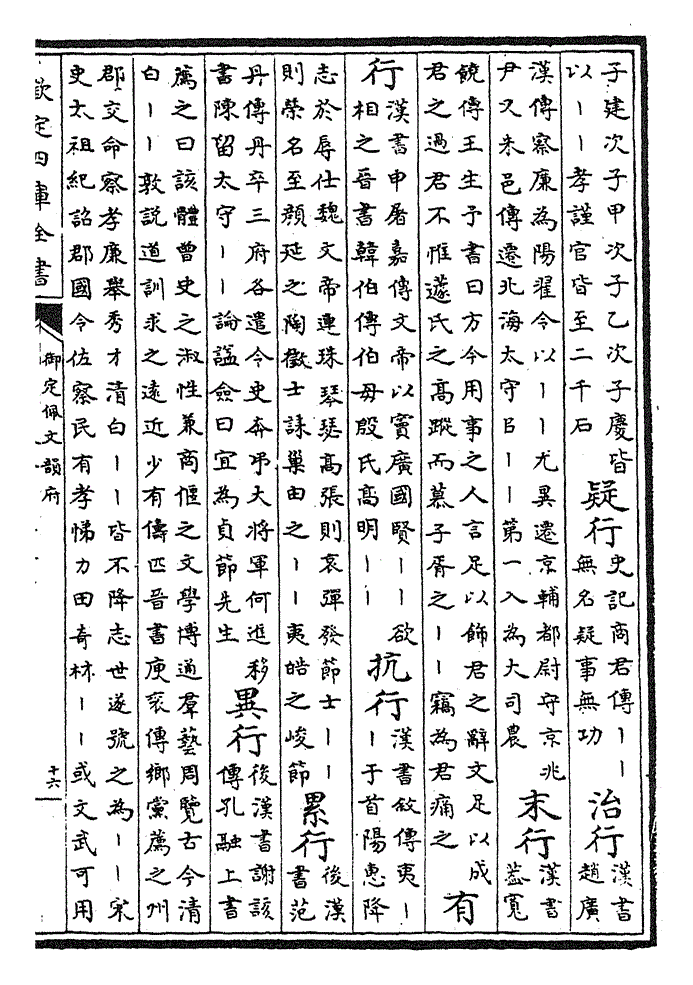 子建次子甲次子乙次子慶皆
以丨丨孝謹官皆至二千石
疑行
史記商君傳丨丨
無名疑事無功
治行
漢書
趙廣
漢傳察廉為陽翟令以丨丨尤異遷京輔都尉守京兆
尹又朱邑傳遷北海太守以丨丨第一入為大司農
末行
漢書
蓋寬
饒傳王生予書曰方今用事之人言足以飾君之辭文足以成
君之過君不惟蘧氏之高蹤而慕子胥之丨丨竊為君痛之
有
行
漢書申屠嘉傳文帝以竇廣國賢丨丨欲
相之晉書韓伯傳伯母殷氏高明丨丨
抗行
漢書敘傳夷丨
丨于首陽惠降
志於辱仕魏文帝連珠琴瑟高張則哀彈發節士丨丨
則榮名至顏延之陶徵士誄巢由之丨丨夷皓之峻節
累行
後漢
書范
丹傳丹卒三府各遣令史奔弔大將軍何進移
書陳留太守丨丨論謚僉曰宜為貞節先生
異行
後漢書謝該
傳孔融上書
薦之曰該體曾史之淑性兼商偃之文學博通羣藝周覽古今清
白丨丨敦說道訓求之遠近少有儔匹晉書庾袞傳鄉黨薦之州
郡交命察孝廉舉秀才清白丨丨皆不降志世遂號之為丨丨宋
史太祖紀詔郡國令佐察民有孝悌力田奇材丨丨或文武可用
欽定四庫全書
御定佩文韻府
十六